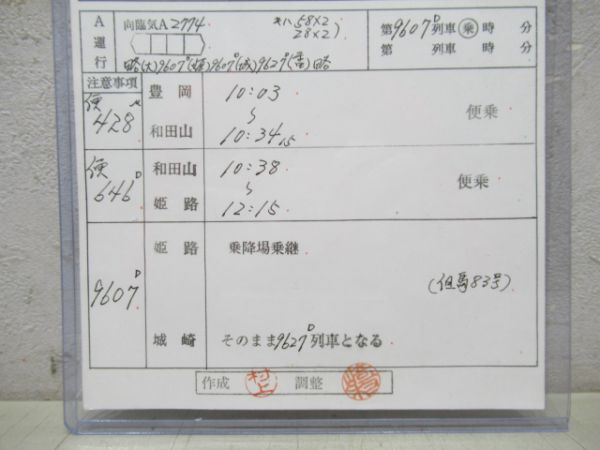 A運行
向臨気A2774
キハ58×2
28×2
第9607D列車 乗 時 分
第 列車 時 分
略(大)9607D(姫)9607D(城)9627D(香)略
注意事項
便 428
豊岡 10:03
和田山 10:34 15
便乗
便 646D
和田山 10:38
姫路 12:15
便乗
9607D
姫路 乗降場乗継
(但馬83号)
城崎 そのまま9627D列車となる
作成 村上 調整